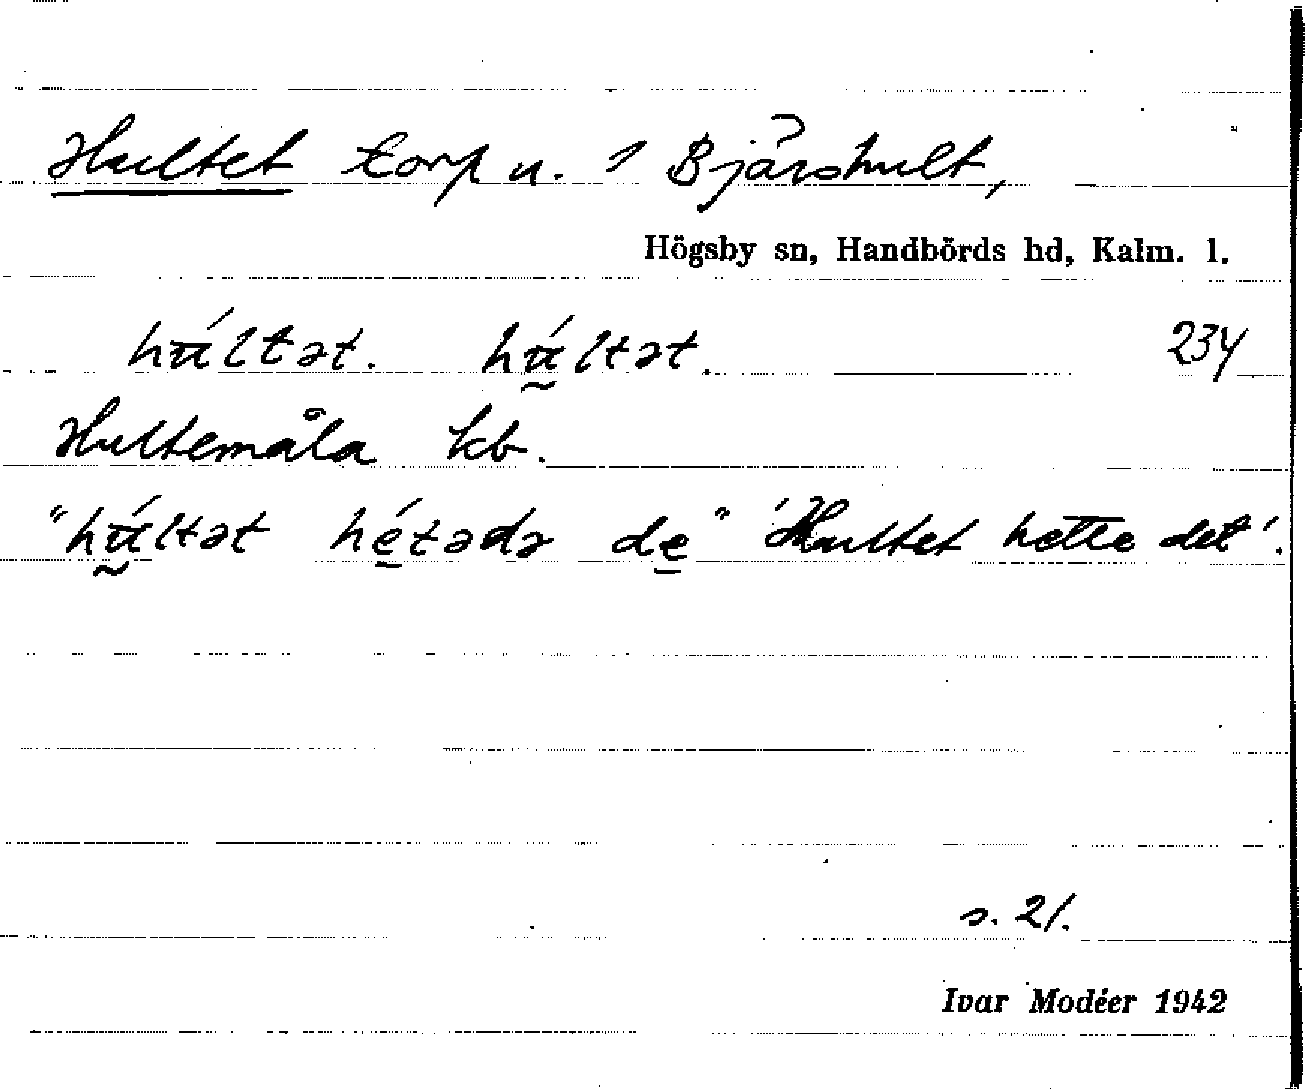 Hultet torp u. 1 Bjärshult,
Högsby sn, Handbörds hd, Kalm. l.
húltət. hṵ́ltət. 234
Hultemåla kb.
"hṵ́ltət hé̱tədə de̱" 'Hultet hette det'.
s. 21.
Ivar Modéer 1942